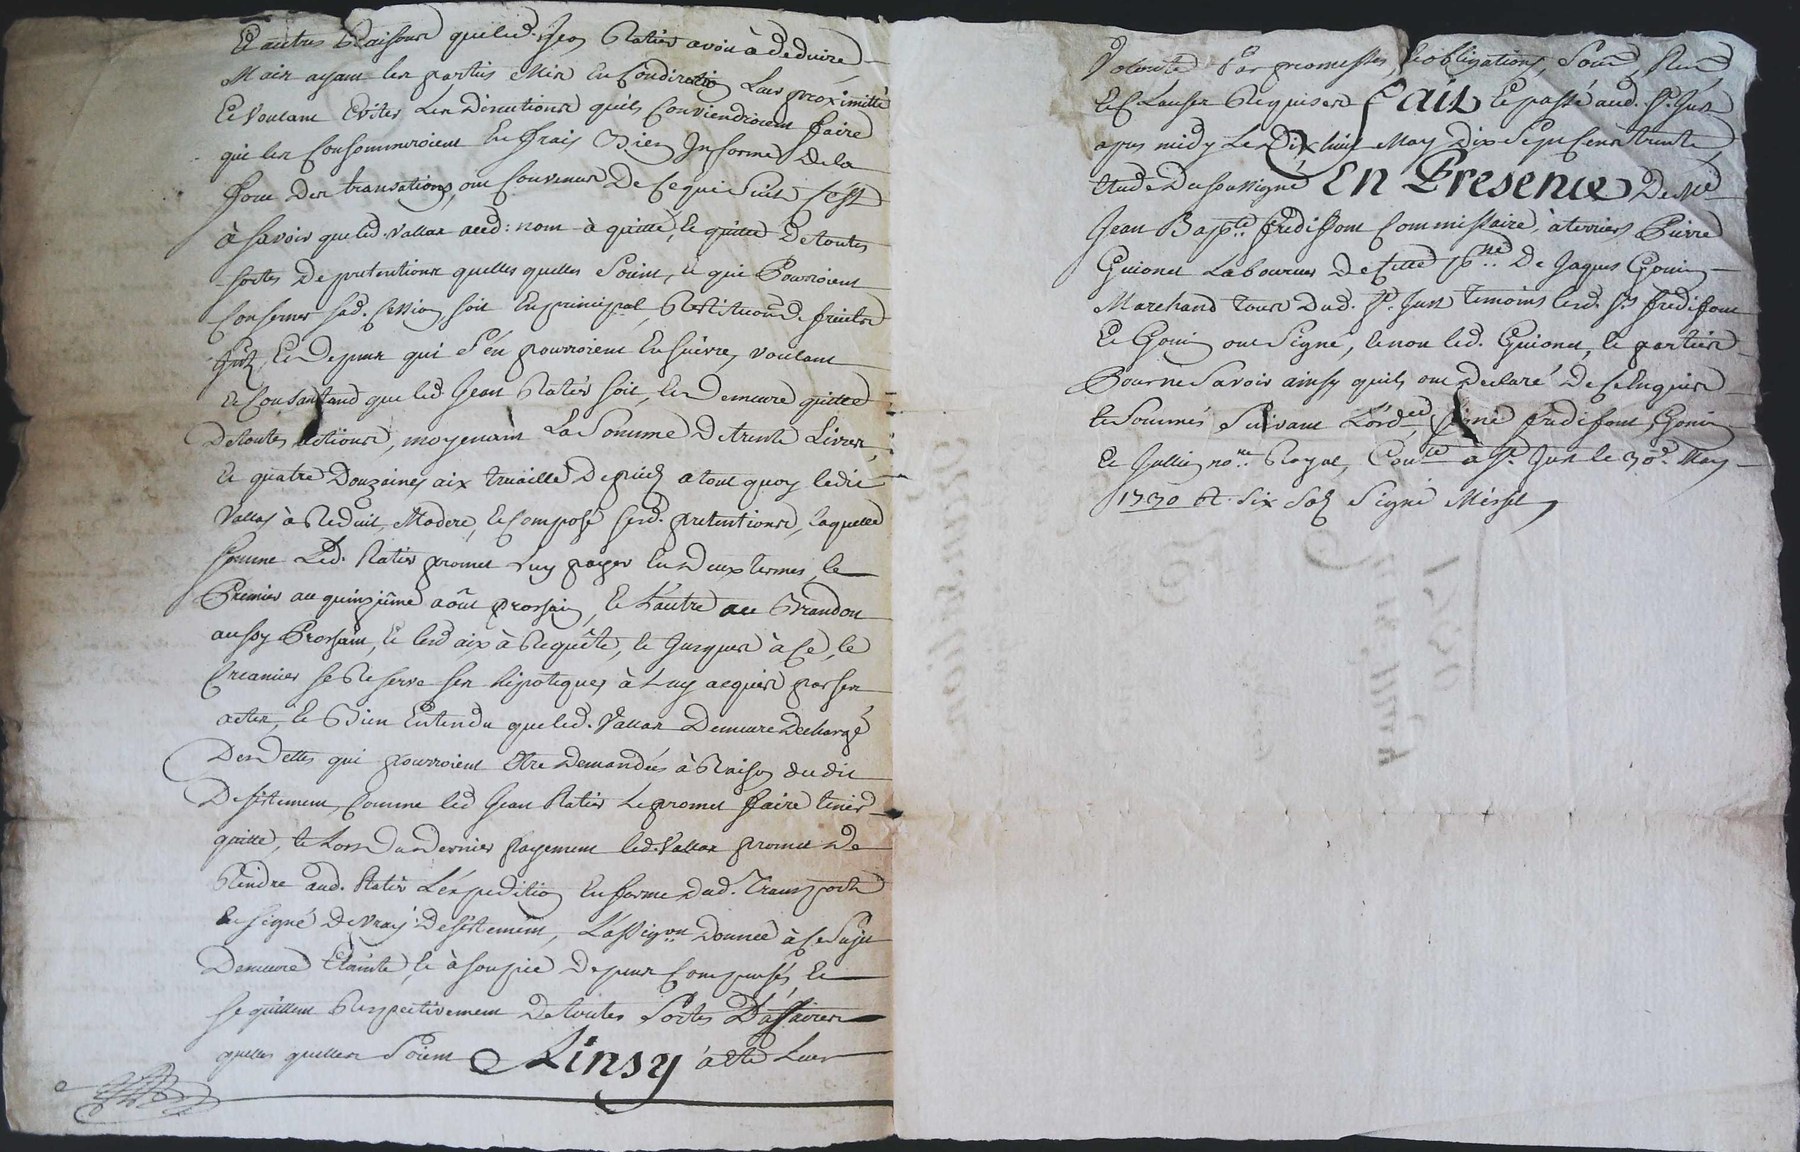 Et autres Raisons que led. Jean Ratier avoit à déduire,
Mais ayant les parties Mis En Consideration Leur proximitté
Et Voulant Eviter Les discutions qu'ils Conviendroient faire
qui les Consommeroient En frais Bien Informés de la
force des transactions, ont Convenus De Ce qui Suit C'est
à Savoir que led. Vallas aud: nom à quitté, Et quitte De toutes
sortes De pretentions quelles quelles Soient, et qui Pourroient
Conserner sad. Cession soit En principal, Restitution de fruits
Et Depens qui S'en pourroient Ensuivre, Voulant
Et Consantand que led. Jean Ratier soit, Et Demeure quitte
De toutes actions, moyenant La Somme De trente Livres,
Et quatre Douzaines aix De pied a tout quoy ledit
Vallas à Reduit, Modere, Et Composé sesd. pretentions, Laquelle
somme Led. Ratier promet Luy payer En Deux termes, le
Premier au quinzième août prochain, Et L'autre au Brandon
aussy Prochain, Et lesd aix à Requête, Et Jusques à Ce, le
Creancier Se Reserve ses hipoteques à Luy acquises par ses
actes, Et Bien Entendu que led. Vallas Demeure Dechargé
Des Dettes qui pourroient Etre Demandées à Raison du dit
Desistement, Comme led Jean Ratier Le promet faire tenir
quitte, Et Lors Du Dernier payement led. Vallas promet De
Rendre aud. Ratier L'expedition En forme dud. Transport
En signe De Vray Desistement, L'assigon Donnée à Ce Sujet
Demeure Eteinte, Et à soupie Depens Compensés, Et
se quittent Respectivement De toutes Sortes D'affaires
quelles quelles Soient Ainsy à été Leur
Volonté Par promesses, Et obligations, Soub,
Et Clauses Requises fait Et passé aud. St. Just
apres midy Le Dix huit May Dix Sept Cens trente,
Etude Du soussigné En Presence De Me
Jean Bapte fredifont Commissaire à terriers Pierre
Guionet Laboureur De Cette psse De Jaques Gonin
Marchand tous Dud. St. Just temoins lesd. Srs fredifont
Et Gonin ont Signé, Et non led. Guionet, Et parties
Pour ne Savoir ainsy qu'ils ont Declaré De Ce Enquis
Et Sommés Suivant L'ordce, signé fredifont, Gonin
Et Jullien nore Royal, Conlé à St. Just le 30e May
1730 Rt. Six Sols Signé Messil